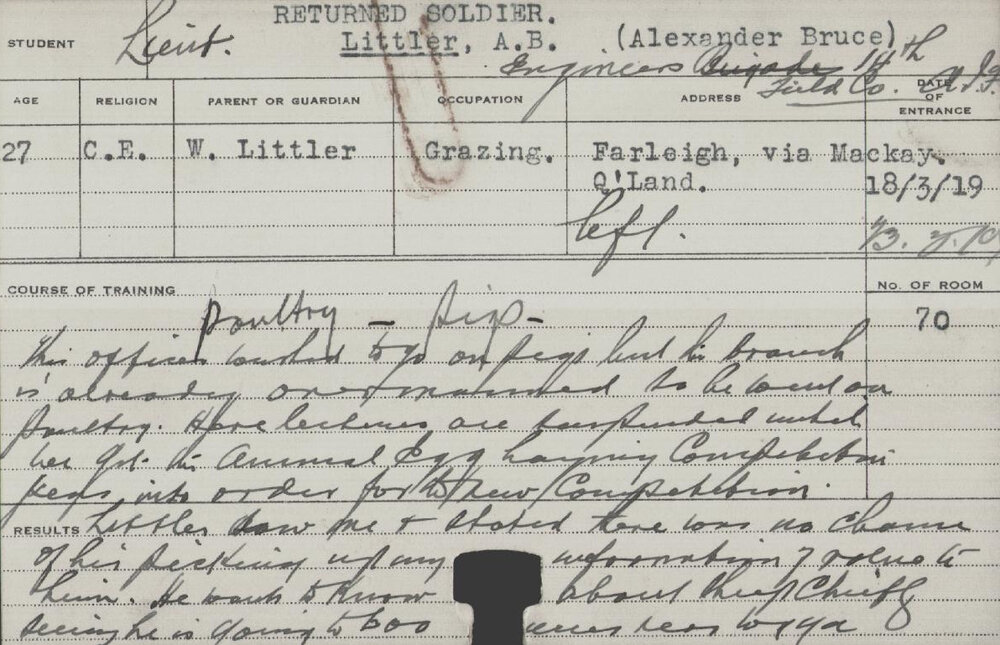 RETURNED SOLDIER.
STUDENT Lieut. Littler, A.B. (Alexander Bruce)
Engineers Brigade 14th
Field Co. A.I.F.
AGE RELIGION PARENT OR GUARDIAN OCCUPATION ADDRESS DATE OF ENTRANCE
27 C.E. W. Littler Grazing. Farleigh, via Mackay.
Q'Land. 18/3/19
left.
COURSE OF TRAINING No. OF ROOM
Poultry - Pigs - 70
This officer wished to go on pigs but this branch
is already overmanned so he went on
Poultry. Here lectures are suspended until
we get the Annual Egg Laying Competition
pens into order for the new Competition.
RESULTS Littler saw me & stated there was no chance
of his picking up any information of value to
him. He wants to know about Pigs chiefly
seeing he is going to